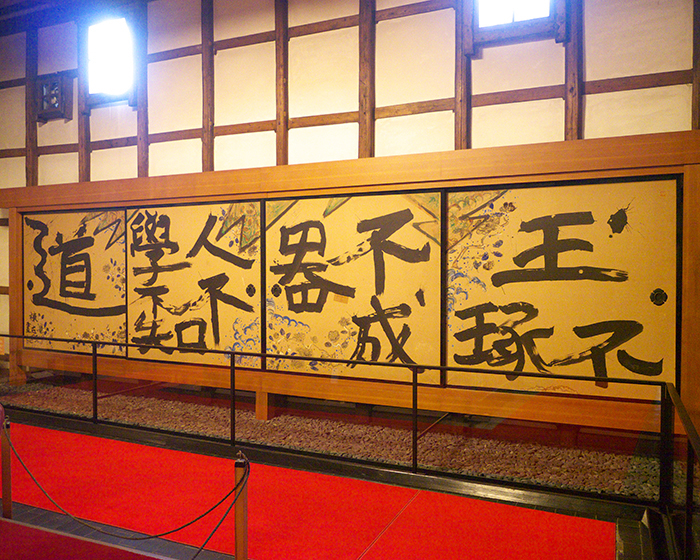 玉不
琢
不成
器
人不
學不知
道